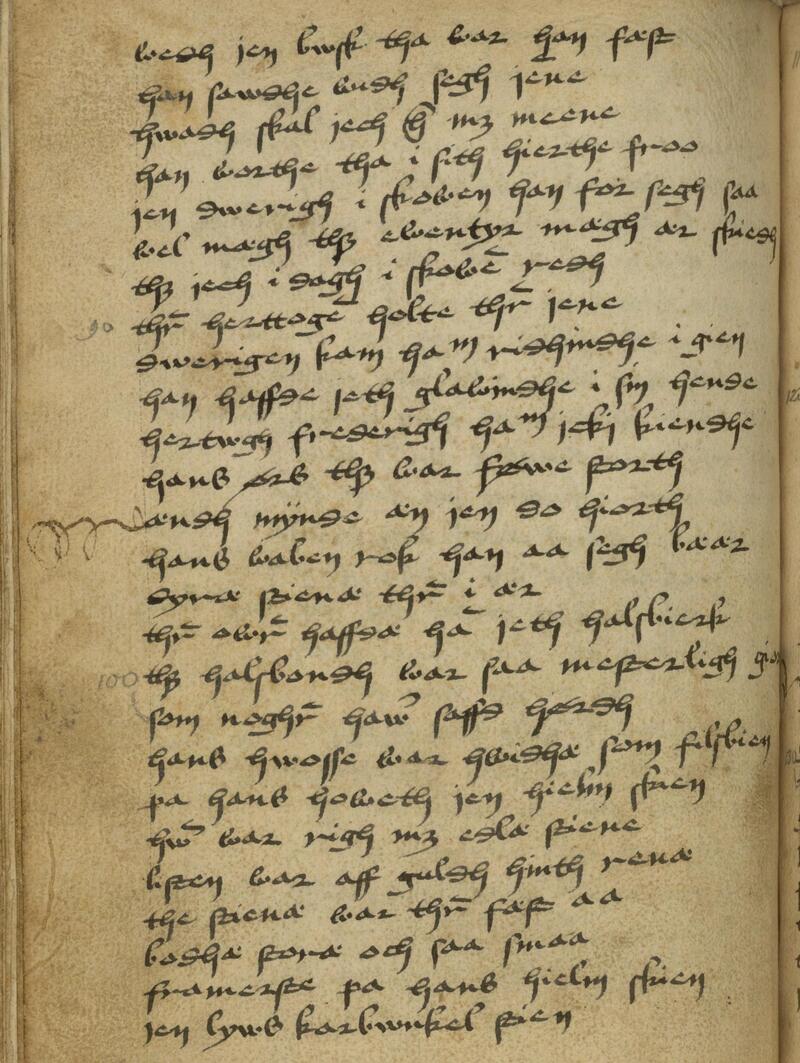 wedh jen bwsk tha war han fæst
han sawdhe widh segh jene
hwadh skal jech th mz meene
han worthe tha i sith hierthe froo
jen dwerigh i skowen han for segh saa
wel mægh thz ewentyr mægh ær skiedh
thz jech i dagh i skowē redh
90 thr̄ herttogē holte thr̄ jene
dwerigen kam ham ridhindhe i gien
han haffde jeth glawindhe i sin hende
hertwgh frederigh ham jcki kiendhe
hans ørs thz war føwe storth
ændh mÿnde æn jen do hiorth
hans waben rok han aa segh bær
dyræ stienæ thr̄ i ær
thr̄ owr̄ haffdæ hā jeth halsbierk
100 thz halsbondh war saa mesterligh
som noghr̄ haw̄ saffd hørdh
hans hwosse war hwidhæ som filsbien
pa hans howeth jen hielm skien
hw̄ war righ mz edlæ stiene
listen war aff guldh hinth renæ
the stienæ war thr̄ fæst aa
bodhæ storæ och saa smaa
framerste pa hans hielm skien
jen lyws karbwnkel stien